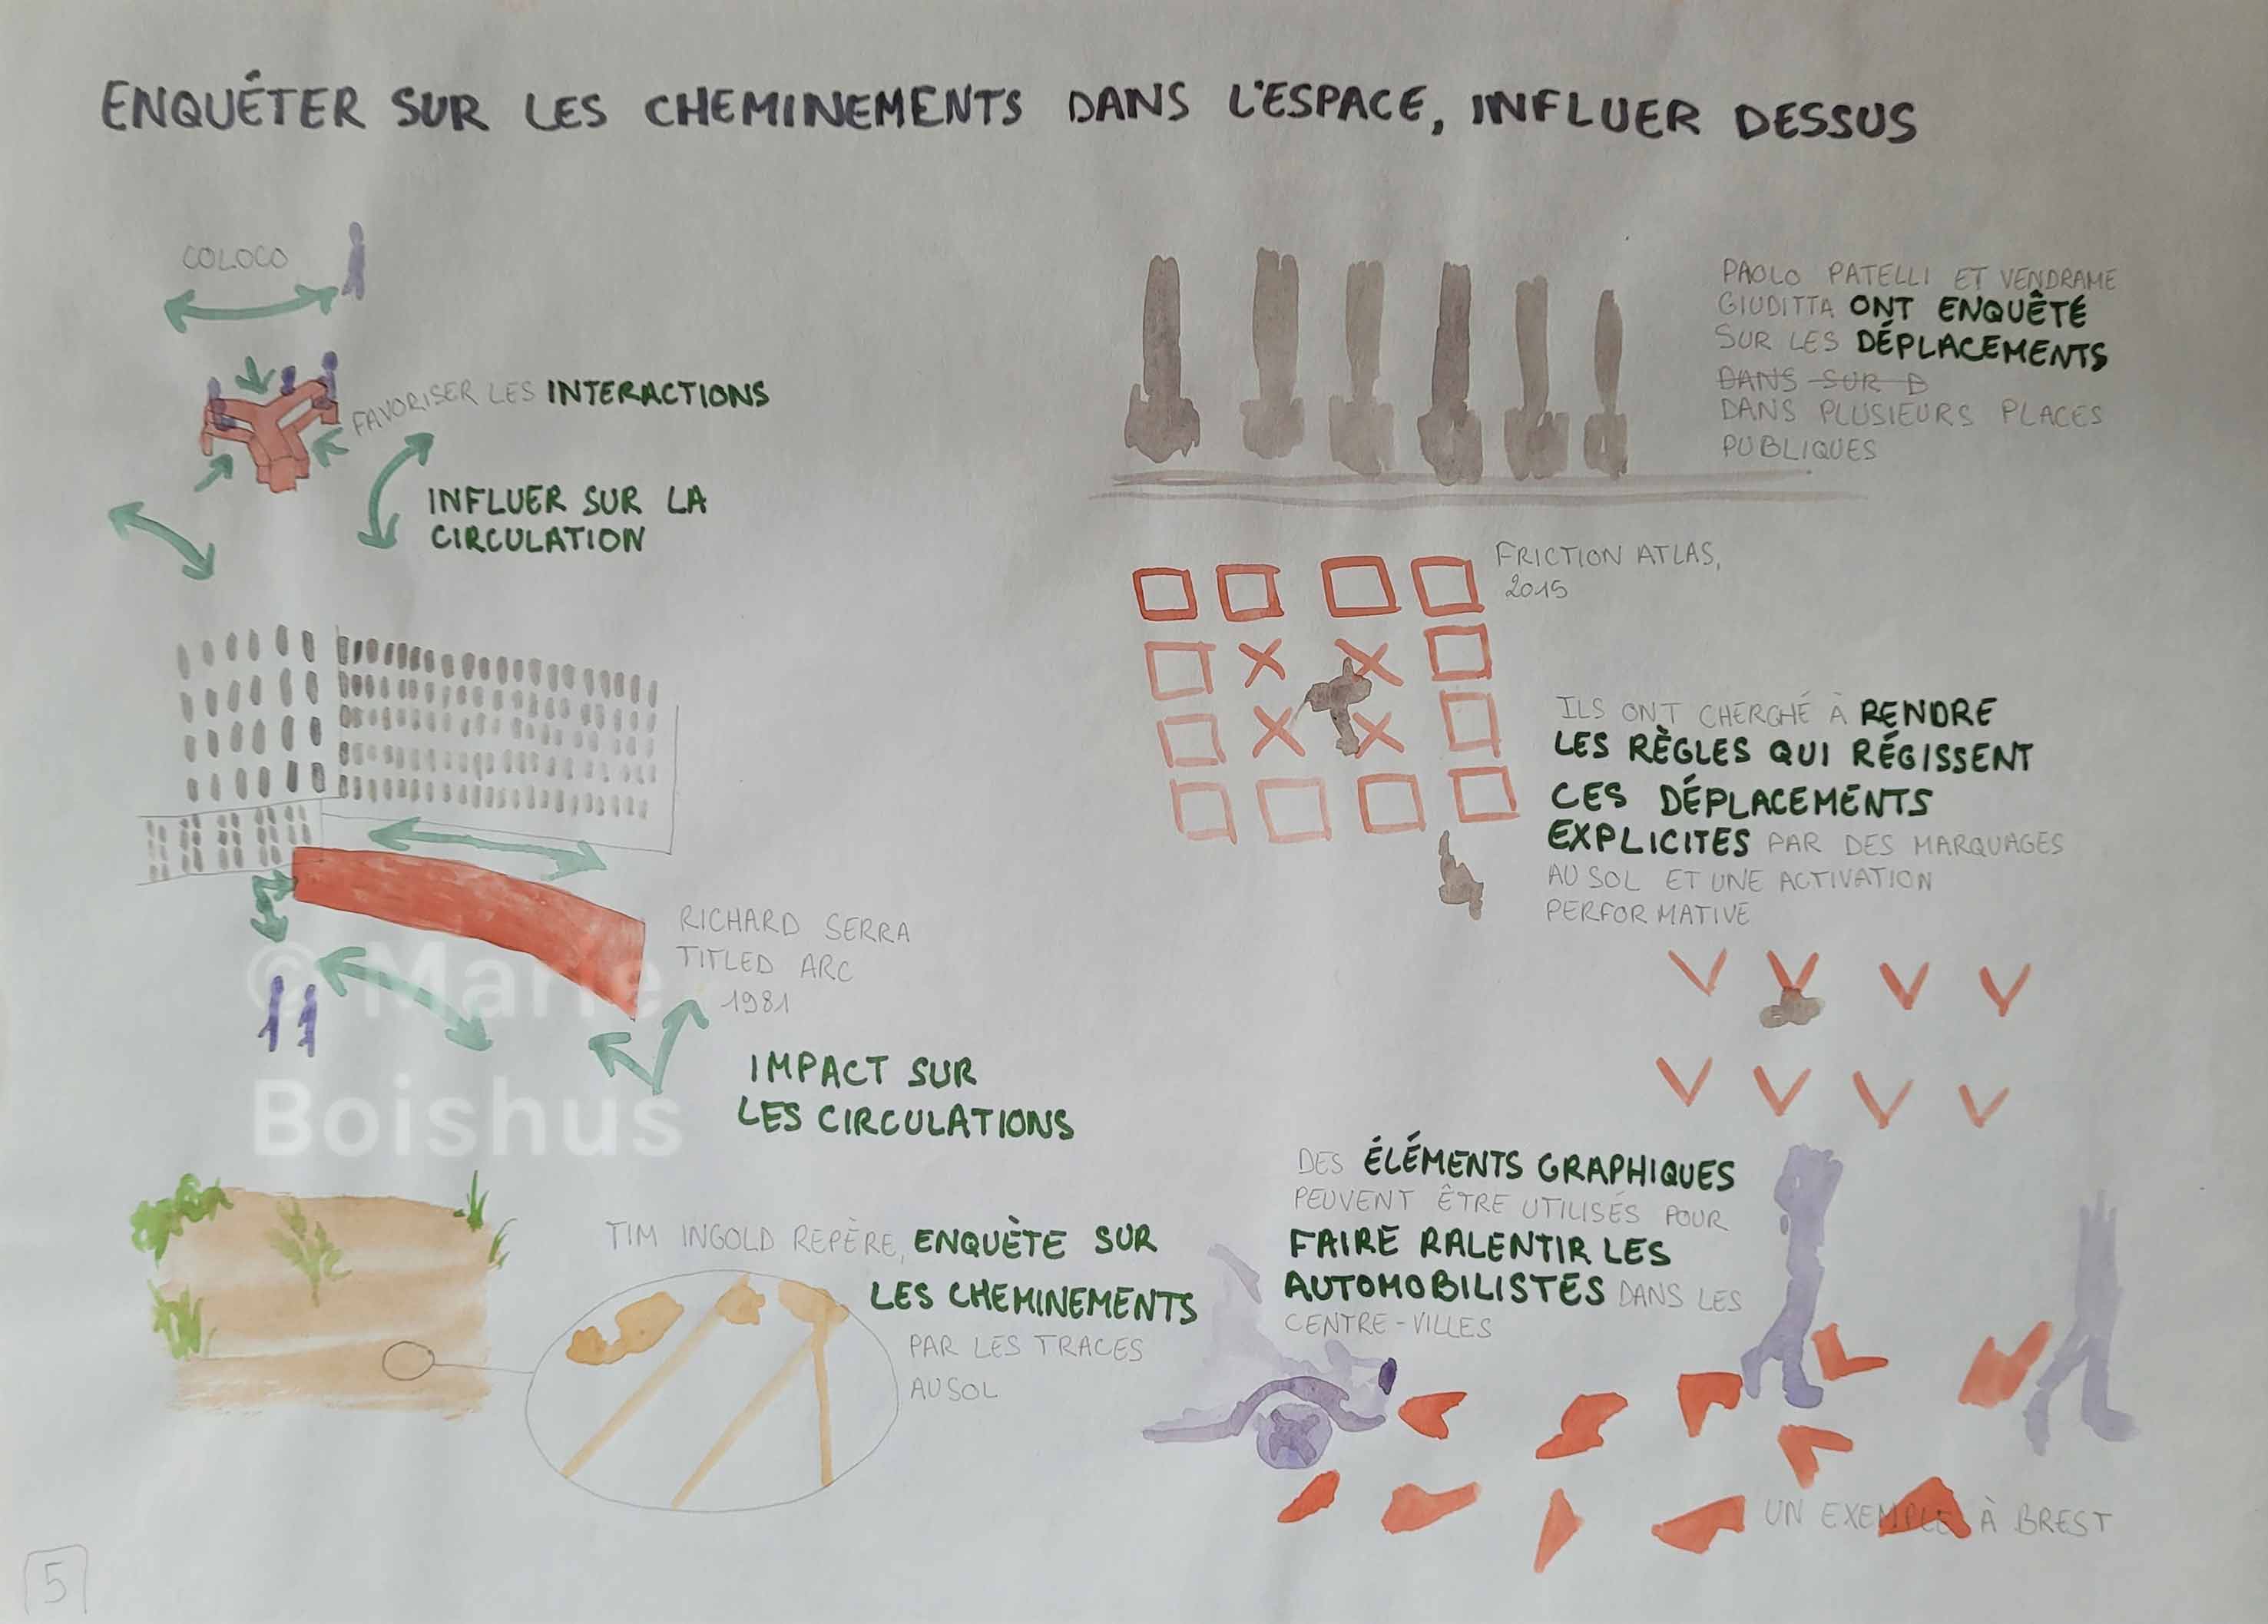 ENQUÊTER SUR LES CHEMINEMENTS DANS L'ESPACE, INFLUER DESSUS
COLOCO
FAVORISER LES INTERACTIONS
INFLUER SUR LA
CIRCULATION
RICHARD SERRA
TITLED ARC
1981
IMPACT SUR
LES CIRCULATIONS
© Marie
Boishus
TIM INGOLD REPÈRE, ENQUÈTE SUR
LES CHEMINEMENTS
PAR LES TRACES
AU SOL
PAOLO PATELLI ET VENDRAME
GIUDITTA ONT ENQUÊTÉ
SUR LES DÉPLACEMENTS
DANS SUR D
DANS PLUSIEURS PLACES
PUBLIQUES
FRICTION ATLAS,
2015
ILS ONT CHERCHÉ À RENDRE
LES RÈGLES QUI RÉGISSENT
CES DÉPLACEMENTS
EXPLICITES PAR DES MARQUAGES
AU SOL ET UNE ACTIVATION
PERFORMATIVE
DES ÉLÉMENTS GRAPHIQUES
PEUVENT ÊTRE UTILISÉS POUR
FAIRE RALENTIR LES
AUTOMOBILISTES DANS LES
CENTRE-VILLES
UN EXEMPLE À BREST
5